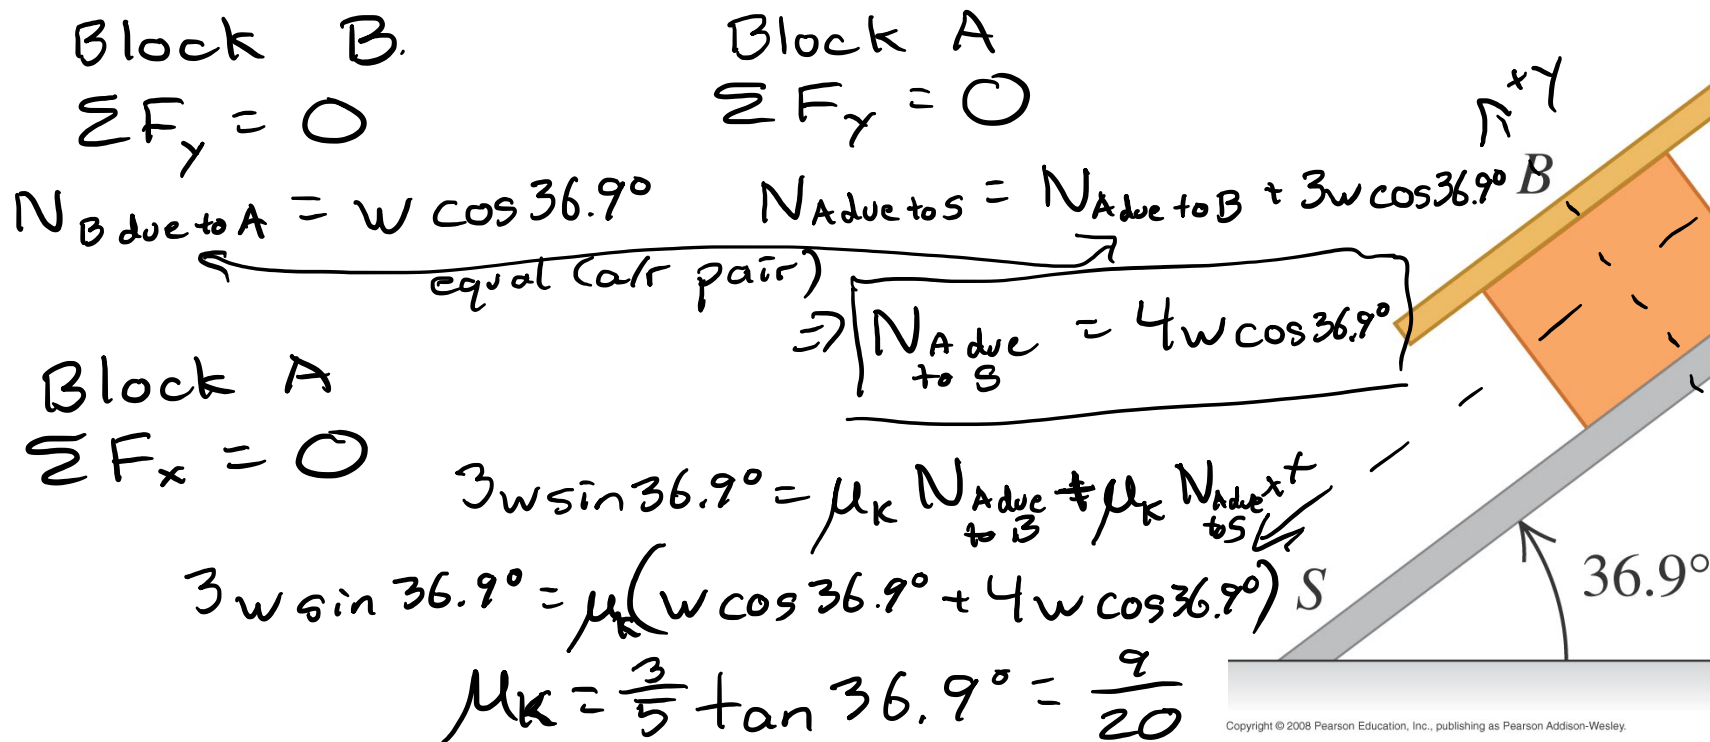 Block B.
ΣF_y = 0
N_B due to A = w cos 36.9°
equal (a/r pair)
Block A
ΣF_y = 0
N_A due to S = N_A due to B + 3w cos 36.9°
⇒ N_A due to S = 4w cos 36.9°
+y
B
Block A
ΣF_x = 0
3w sin 36.9° = μ_K N_A due to B + μ_K N_A due to S
+x
3w sin 36.9° = μ_K (w cos 36.9° + 4w cos 36.9°)
μ_K = 3/5 tan 36.9° = 9/20
S
36.9°
Copyright © 2008 Pearson Education, Inc., publishing as Pearson Addison-Wesley.